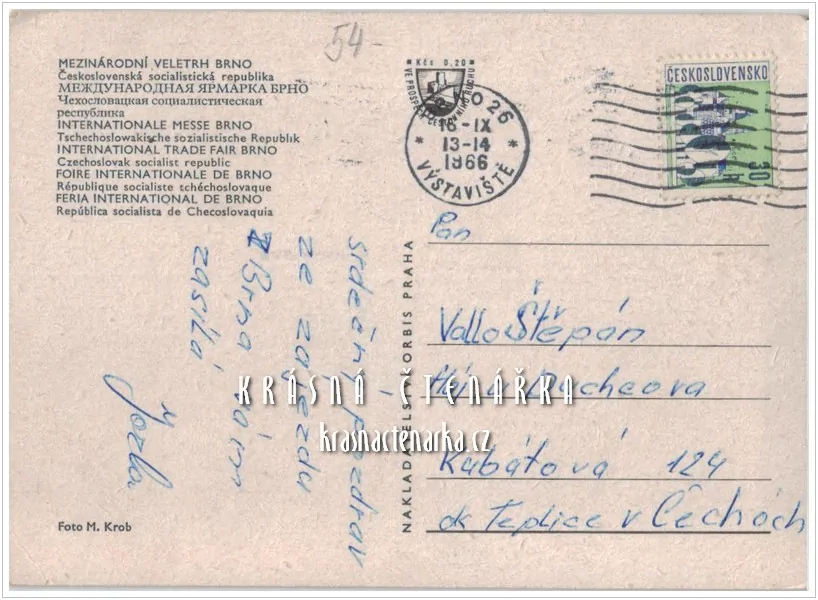 54-
MEZINÁRODNÍ VELETRH BRNO
Československá socialistická republika
МЕЖДУНАРОДНАЯ ЯРМАРКА БРНО
Чехословацкая социалистическая
республика
INTERNATIONALE MESSE BRNO
Tschechoslowakische sozialistische Republik
INTERNATIONAL TRADE FAIR BRNO
Czechoslovak socialist republic
FOIRE INTERNATIONALE DE BRNO
République socialiste tchéchoslovaque
FERIA INTERNATIONAL DE BRNO
República socialista de Checoslovaquia
Kčs 0,20
VE PROSPĚCH CESTOVNÍHO RUCHU
BRNO 26
16-IX
13-14
1966
* VÝSTAVIŠTĚ *
ČESKOSLOVENSKO
30 h
srdečný pozdrav
ze zájezdu
z Brna vám
zasílá
NAKLADATELSTVÍ ORBIS PRAHA
Pan
Vallo Štěpán
Kubátová 124
ok Teplice v Čechách
KRÁSNÁ ČTENÁŘKA
krasnactenarka.cz
Foto M. Krob